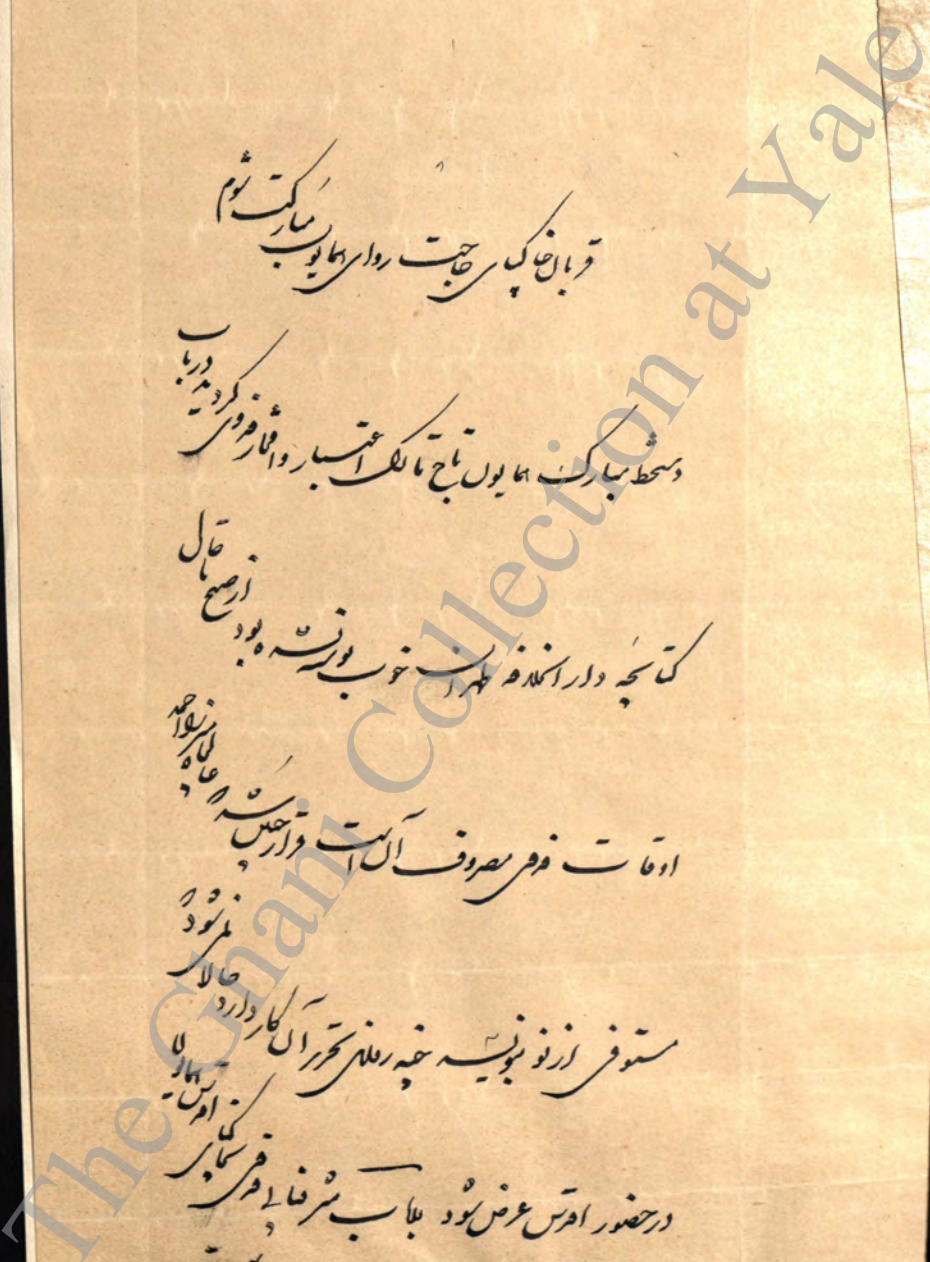 قربان خاکپای حاجت روای همایون مبارکت شوم
دستخط مبارک همایون تاج تارک اعتبار و افتخار فدوی گردید در باب
کتابچه دارالخلافه طهران خوب نوشته نشده بود از صبح تا حال
اوقات فدوی مصروف آن است قرار جلسه شد عالیجاه میرزا احمد
مستوفی از نو بنویسد چند روزی تحریر آن کار دارد حالا نمی‌شود
در حضور اقدس عرض شود به شرفیابی فدوی خاکپای اقدس همایون
The Ghani Collection at Yale